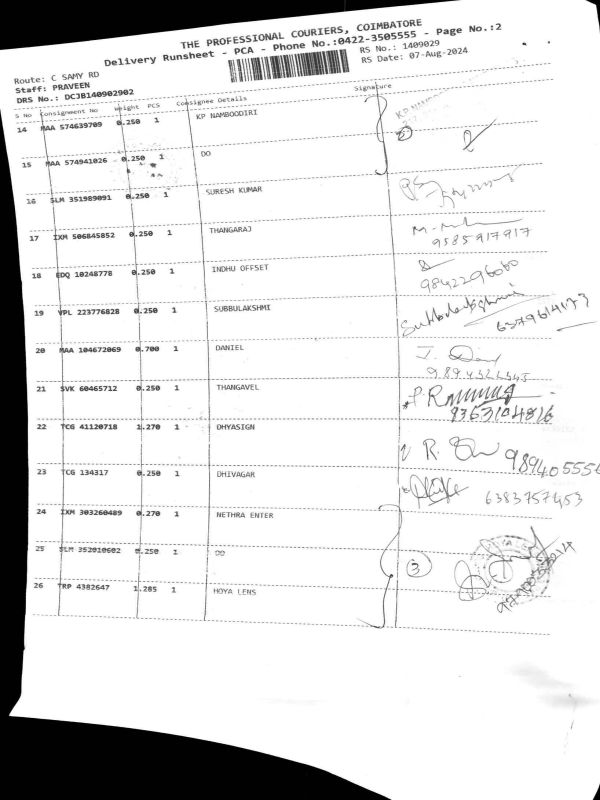 THE PROFESSIONAL COURIERS, COIMBATORE
Delivery Runsheet - PCA - Phone No.:0422-3505555 - Page No.:2
Route: C SAMY RD
RS No.: 1409029
Staff: PRAVEEN
RS Date: 07-Aug-2024
DRS No.: DCJB140902902
S No Consignment No Weight PCS Consignee Details Signature
14 MAA 574639709 0.250 1 KP NAMBOODIRI
15 MAA 574941026 0.250 1 DO
2
16 SLM 351989091 0.250 1 SURESH KUMAR
17 IXM 506845852 0.250 1 THANGARAJ
9585917917
18 EDQ 10248778 0.250 1 INDHU OFFSET
9842296060
19 VPL 223776828 0.250 1 SUBBULAKSHMI
Subbulakshmi
6379614173
20 MAA 104672069 0.700 1 DANIEL
21 SVK 60465712 0.250 1 THANGAVEL
9363104816
22 TCG 41120718 1.270 1 DHYASIGN
989405556
23 TCG 134317 0.250 1 DHIVAGAR
6383757453
24 IXM 303260489 0.270 1 NETHRA ENTER
25 SLM 352010602 0.250 1 DO
3
26 TRP 4382647 1.285 1 HOYA LENS